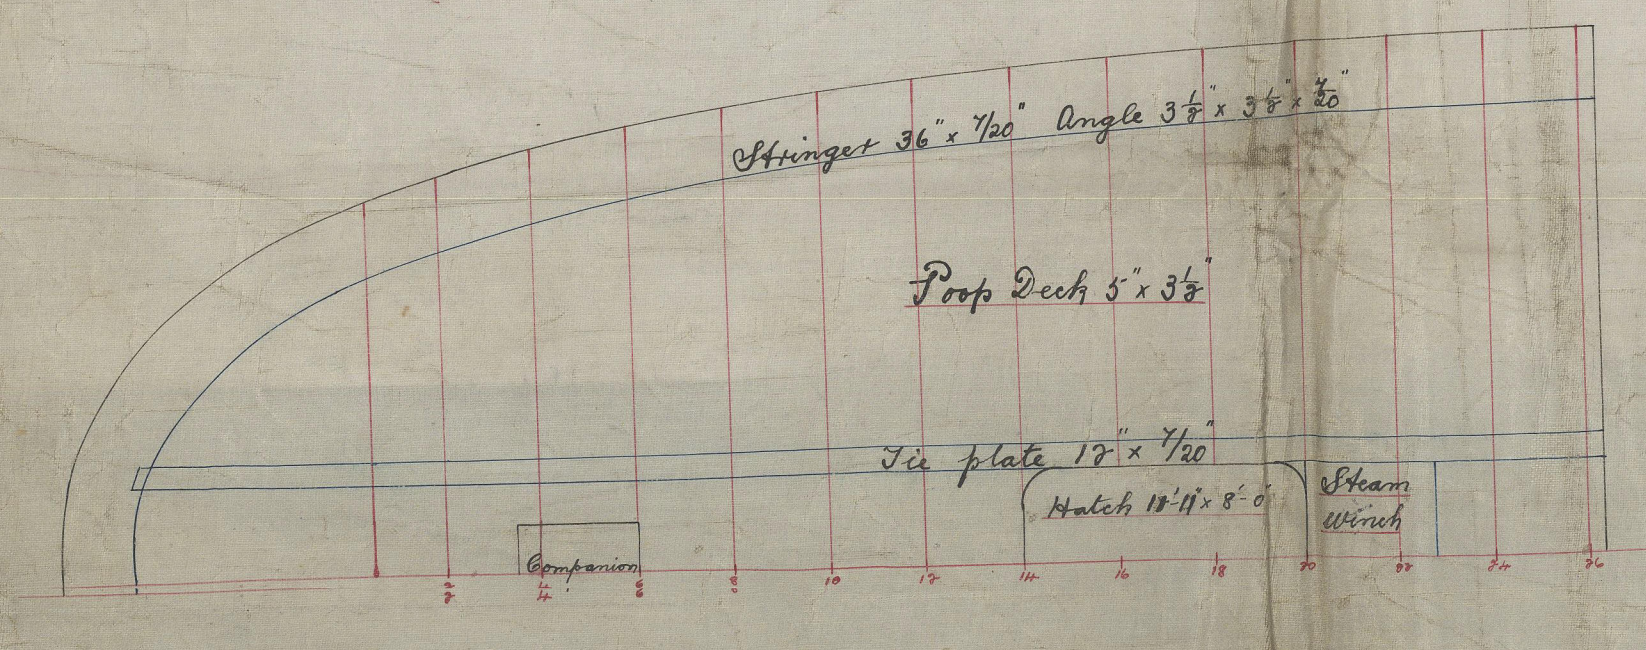 Stringer 36" x 7/20" Angle 3 1/2" x 3 1/2" x 7/20"
Poop Deck 5" x 3 1/2"
Tie plate 12" x 7/20"
Hatch x 8'-0"
Steam
Winch
Companion
2 4 6 8 10 12 14 16 18 20 22 24 26
2 4 6